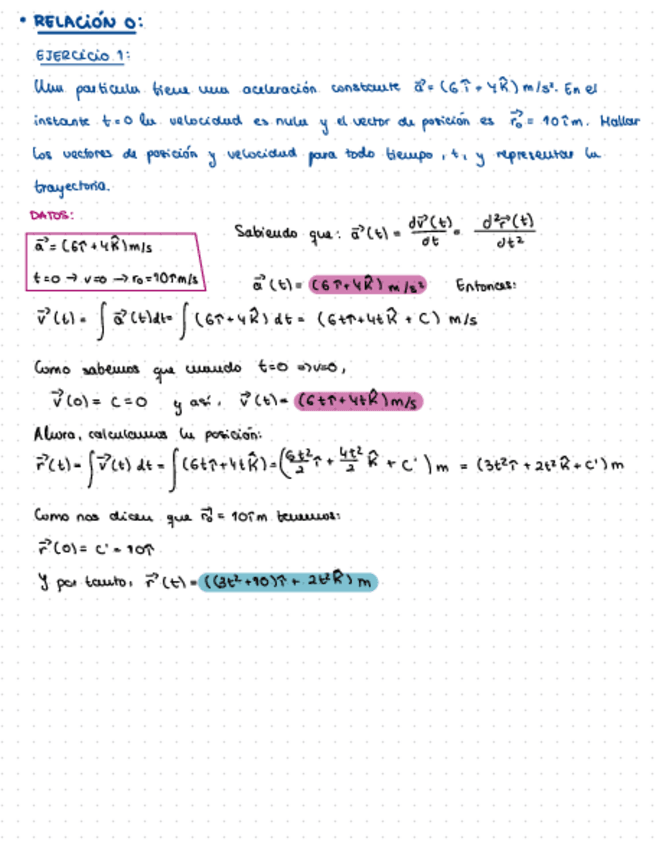 • RELACIÓN 0:
EJERCICIO 1:
Una partícula tiene una aceleración constante a⃗ = (6î + 4k̂) m/s². En el
instante t=0 la velocidad es nula y el vector de posición es r⃗₀ = 10î m. Hallar
los vectores de posición y velocidad para todo tiempo, t, y representar la
trayectoria.
DATOS:
a⃗ = (6î + 4k̂) m/s
t=0 → v=0 → r₀=10î m/s
Sabiendo que: a⃗(t) = dv⃗(t)/dt = d²r⃗(t)/dt²
a⃗(t) = (6î+4k̂) m/s² Entonces:
v⃗(t) = ∫ a⃗(t)dt = ∫ (6î+4k̂) dt = (6tî+4tk̂ + C) m/s
Como sabemos que cuando t=0 ⇒ v=0,
v⃗(0) = C = 0 y así, v⃗(t) = (6tî+4tk̂) m/s
Ahora, calculamos la posición:
r⃗(t) = ∫ v⃗(t) dt = ∫ (6tî+4tk̂) = (6t²/2 î + 4t²/2 k̂ + C') m = (3t²î + 2t²k̂ + C') m
Como nos dicen que r⃗₀ = 10î m tenemos:
r⃗(0) = C' = 10î
Y por tanto, r⃗(t) = ((3t²+10)î + 2t²k̂) m